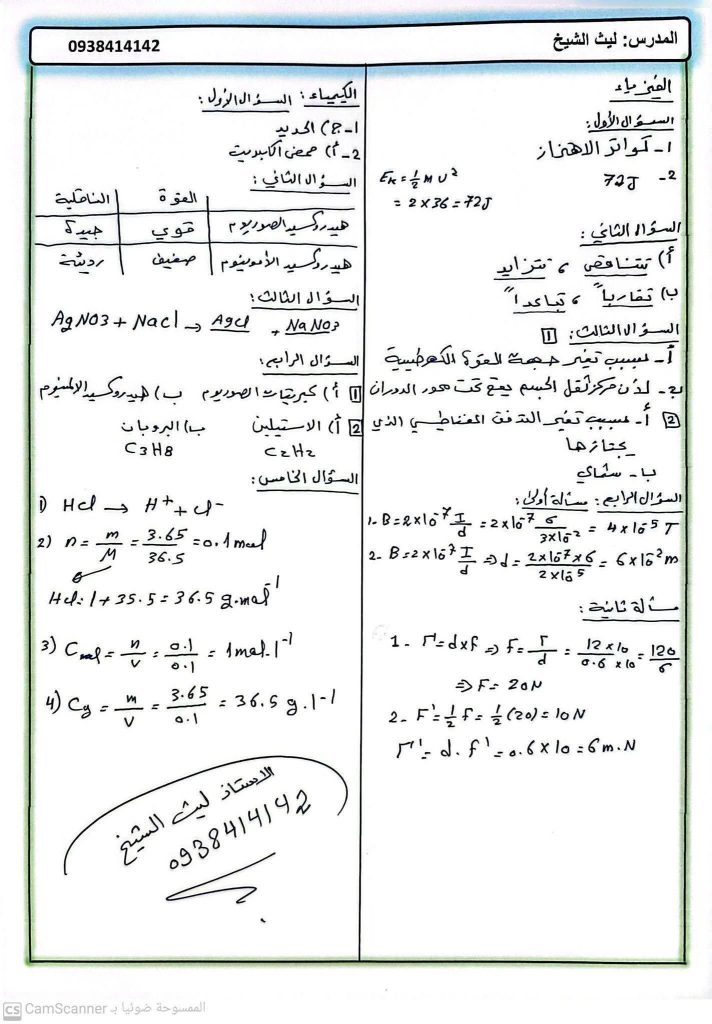 المدرس: ليث الشيخ
0938414142
الفيزياء
السؤال الأول:
1- تواتر الاهتزاز
2- 72J
Eₖ = ½ m v²
= 2 × 36 = 72J
السؤال الثاني:
أ) تتناقص، تتزايد
ب) تقارباً، تباعداً
السؤال الثالث: 1
أ- بسبب تغير جهة القوة الكهرطيسية
ب- لأن مركز ثقل الجسم يقع تحت محور الدوران
2 أ- بسبب تغير التدفق المغناطيسي الذي
يجتازها
ب- شمالي
السؤال الرابع: مسألة أولى:
1- B = 2×10⁻⁷ I/d = 2×10⁻⁷ 6/3×10⁻² = 4×10⁻⁵ T
2- B = 2×10⁻⁷ I/d ⇒ d = 2×10⁻⁷×6/2×10⁻⁵ = 6×10⁻² m
مسألة ثانية:
1- Γ = d×F ⇒ F = Γ/d = 12×10/0.6×10 = 120/6
⇒ F = 20N
2- F' = ½ F = ½ (20) = 10N
Γ' = d . F' = 0.6 × 10 = 6 m.N
الكيمياء: السؤال الأول:
1- ج) الحديد
2- أ) حمض الكبريت
السؤال الثاني:
القوة الناقلية
هيدروكسيد الصوديوم قوي جيدة
هيدروكسيد الأمونيوم ضعيف رديئة
السؤال الثالث:
AgNO3 + NaCl → AgCl + NaNO3
السؤال الرابع:
1 أ) كبريتات الصوديوم ب) هيدروكسيد الألمنيوم
2 أ) الاستيلين ب) البروبان
C2H2 C3H8
السؤال الخامس:
1) HCl → H⁺ + Cl⁻
2) n = m/M = 3.65/36.5 = 0.1 mol
HCl: 1 + 35.5 = 36.5 g.mol⁻¹
3) Cmol = n/V = 0.1/0.1 = 1 mol.l⁻¹
4) Cg = m/V = 3.65/0.1 = 36.5 g.l⁻¹
الاستاذ ليث الشيخ
0938414142
CS CamScanner الممسوحة ضوئيا بـ